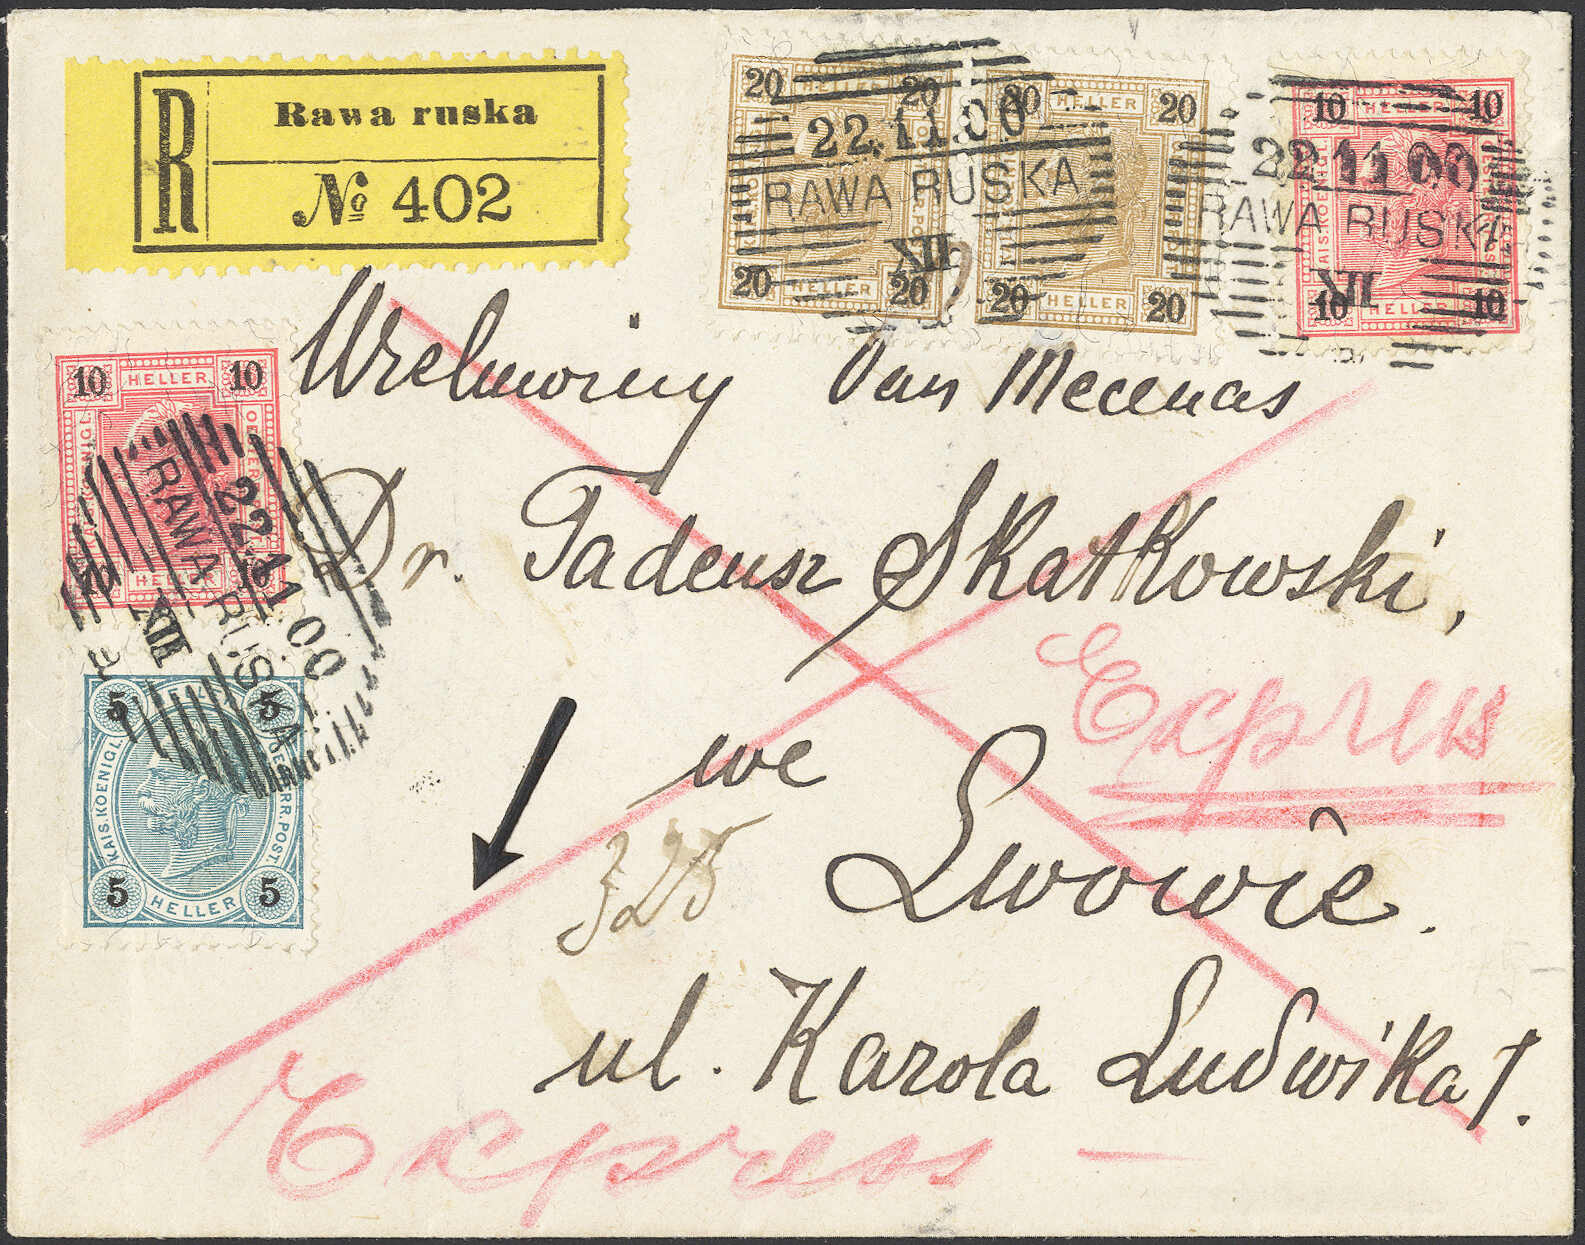 R
Rawa ruska
№ 402
20 HELLER 20
20 HELLER 20
22.11.00
RAWA RUSKA
XII
20 HELLER 20
20 HELLER 20
10 HELLER 10
10 HELLER 10
KAIS.KOENIGL.
22.11.00
RAWA RUSKA
XII
Wielmożny Pan Mecenas
10 HELLER 10
HELLER
22.11.00
RAWA RUSKA
XII
Dr. Tadeusz Skałkowski,
Express
we
Lwowie.
325
5 5
KAIS.KOENIGL. OESTERR.POST.
5 HELLER 5
ul. Karola Ludwika 1.
Express